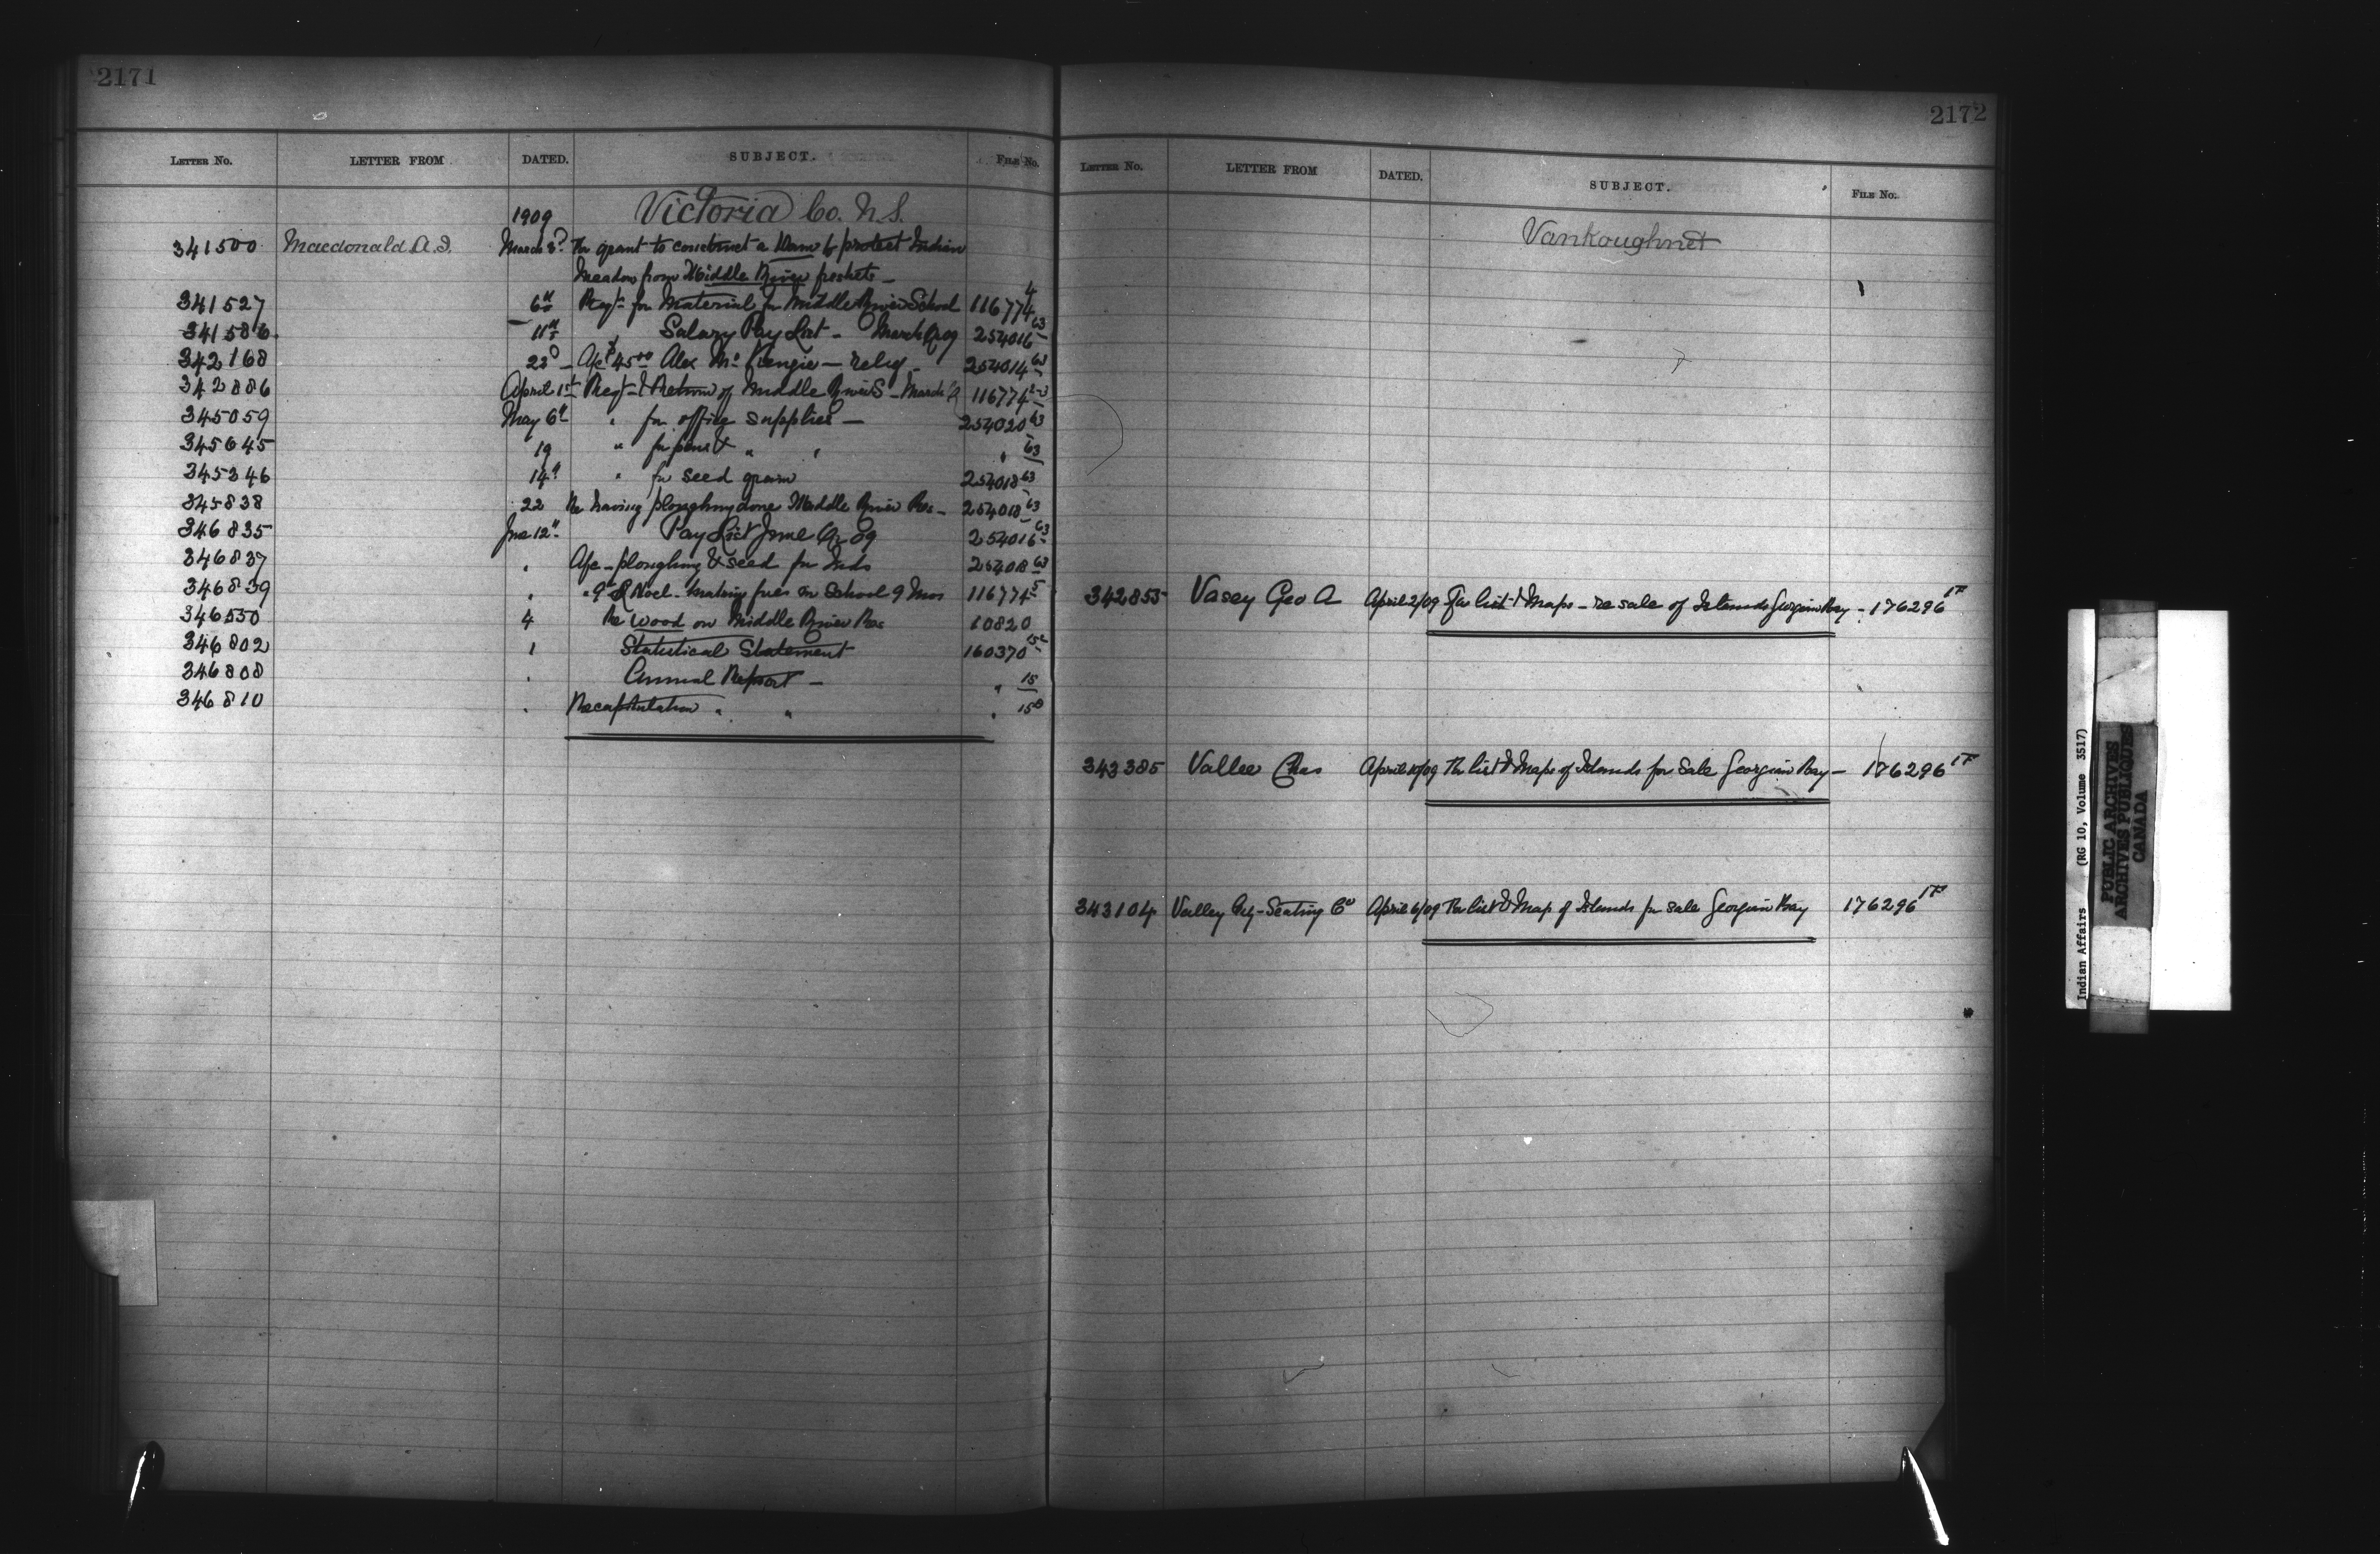 2171
LETTER NO. LETTER FROM DATED. SUBJECT. FILE NO.
Victoria Co. N.S.
1909
341500 Macdonald A.J. March 3d For grant to construct a Dam to protect Indian
Meadow from Middle River freshets —
341527 6th Reqt for Material for Middle River School 116774 4
341586 11th Salary Pay List — March Qr 09 254016 63
342168 22d — A/c $45.00 Alex McKenzie — relief — 254014 63
342886 April 1st Reqt & Return of Middle River S — March Q 116774
345059 May 6th " for office supplies — 254020 63
345645 19 " for pens & " " " 63
345346 14th " for seed grain 254018 63
345838 22 Re having ploughing done Middle River Res — 254018 63
346835 June 12th Pay List June Qr 09 254016 63
346837 " A/c — ploughing & seed for Inds 254018 63
346839 " " Noel — making fires in School 9 Mos 116774 5
346550 4 Re Wood on Middle River Res 10820
346802 1 Statistical Statement 160370
346808 " Annual Report — " 15
346810 " Recapitulation " " " 15
2172
LETTER NO. LETTER FROM DATED. SUBJECT. FILE NO.
Vankoughnet
342855 Vasey Geo A April 2/09 For list & Maps — re sale of Islands Georgian Bay — 176296 1F
343385 Vallee Chas April 10/09 For list & Maps of Islands for Sale Georgian Bay — 176296 1F
343104 Valley City Seating Co April 6/09 For list & Map of Islands for sale Georgian Bay 176296 1F
Indian Affairs (RG 10, Volume 3517)
PUBLIC ARCHIVES
ARCHIVES PUBLIQUES
CANADA